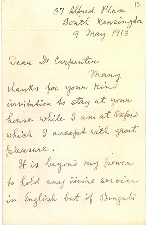 15
37 Alfred Place
South Kensington
9 May 1913
Dear Dr Carpenter
Many
thanks for your kind
invitation to stay at your
house while I am at Oxford
which I accept with great
pleasure.
It is beyond my power
to hold any divine service
in English but if Bengali